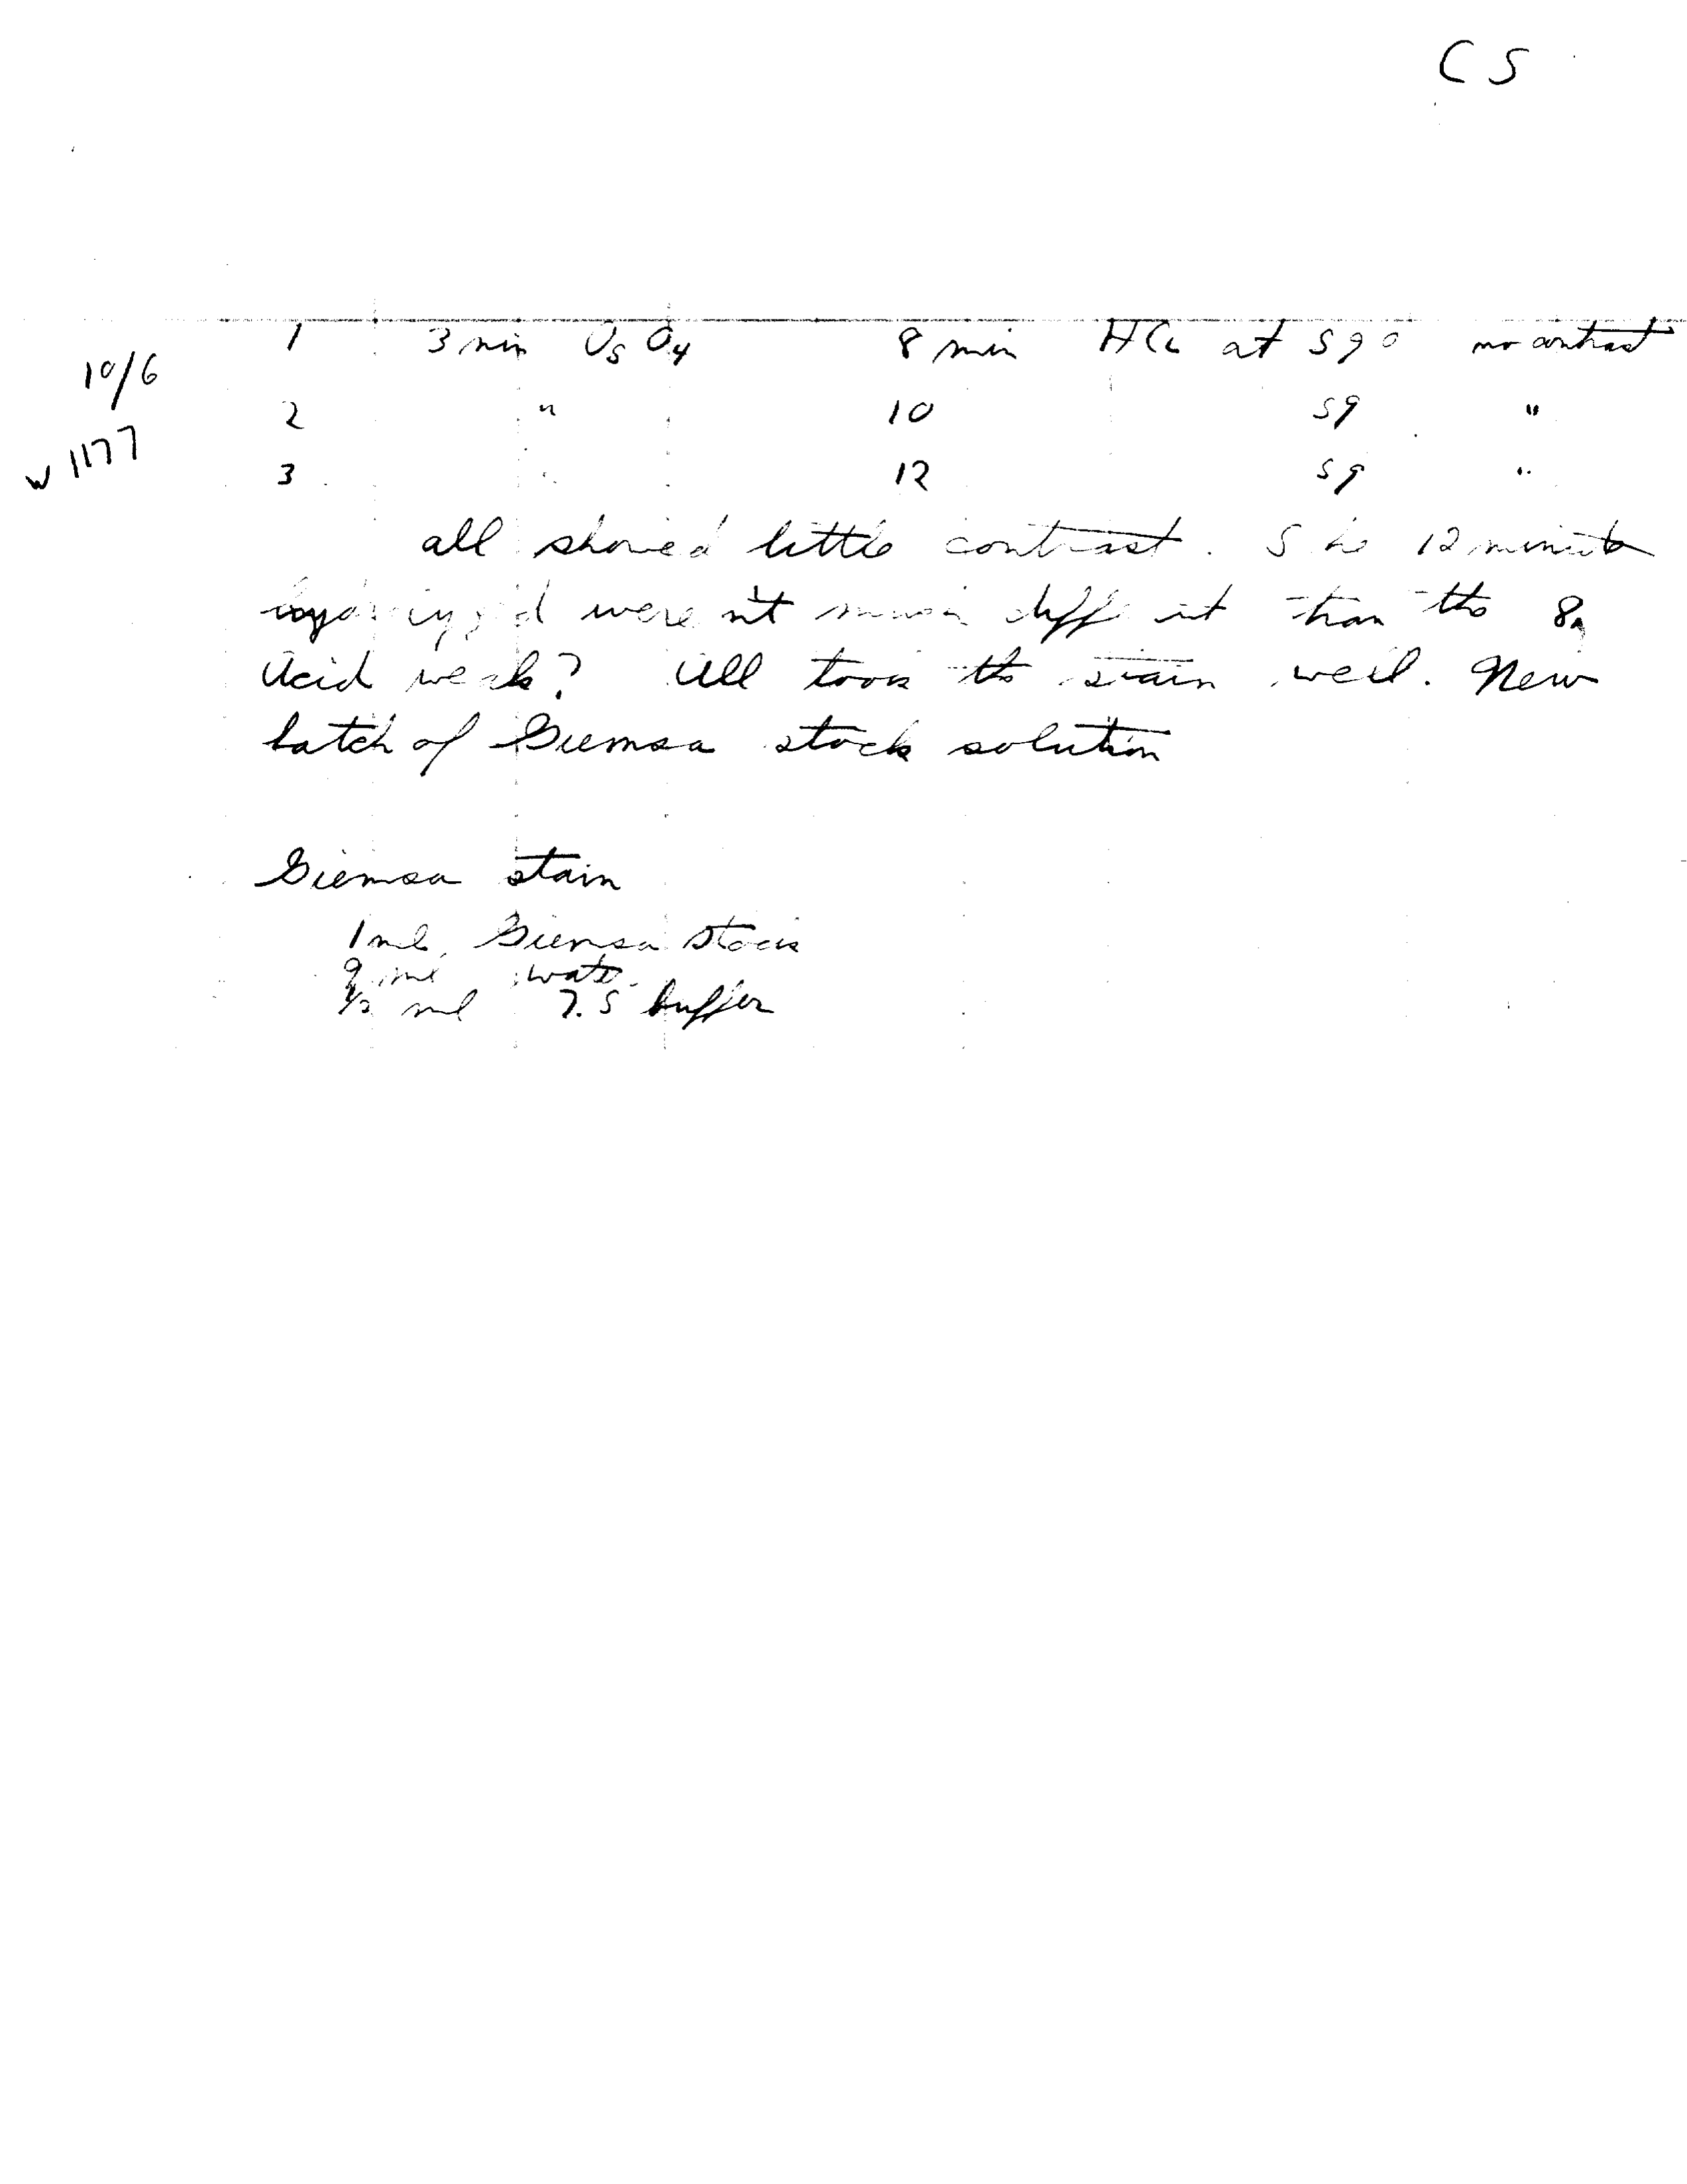 CS
10/6 1 3 min OsO4 8 min HCl at 59° no contrast
2 " 10 59 "
W1177 3 " 12 59 "
all showed little contrast. The 12 minute
weren't much different than the 8.
Acid weak? All took the stain well. New
batch of Giemsa stock solution
Giemsa stain
1 ml. Giemsa stock
9 ml water
1/2 ml 7.5 buffer